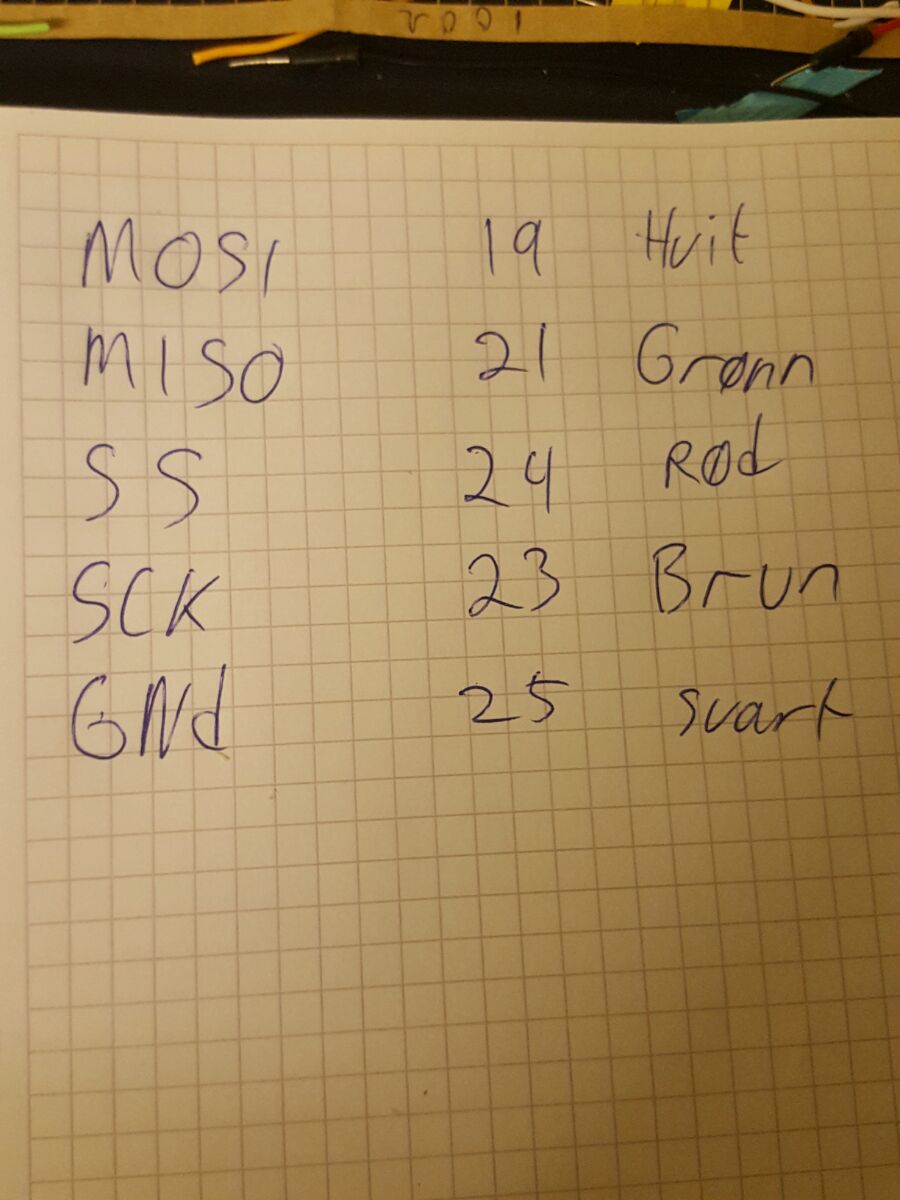 MOSI 19 Hvit
MISO 21 Grønn
SS 24 Rød
SCK 23 Brun
GNd 25 svart